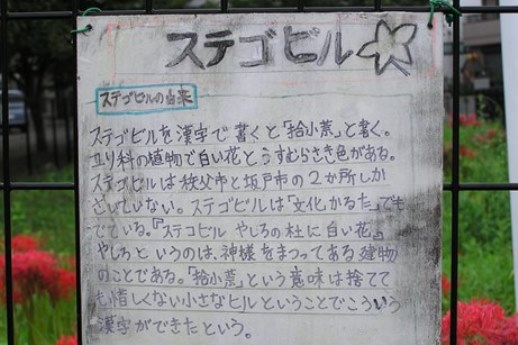 ステゴビル
ステゴビルの由来
ステゴビルを漢字で書くと「拾小蒜」と書く。
ユリ科の植物で白い花とうすむらさき色がある。
ステゴビルは秩父市と坂戸市の2か所しか
さいていない。ステゴビルは「文化かるた」でも
でている。『ステコビル やしろの杜に白い花』
やしろというのは、神様をまつってある建物
のことである。「拾小蒜」という意味は捨てて
も惜しくない小さなヒルということでこういう
漢字ができたという。